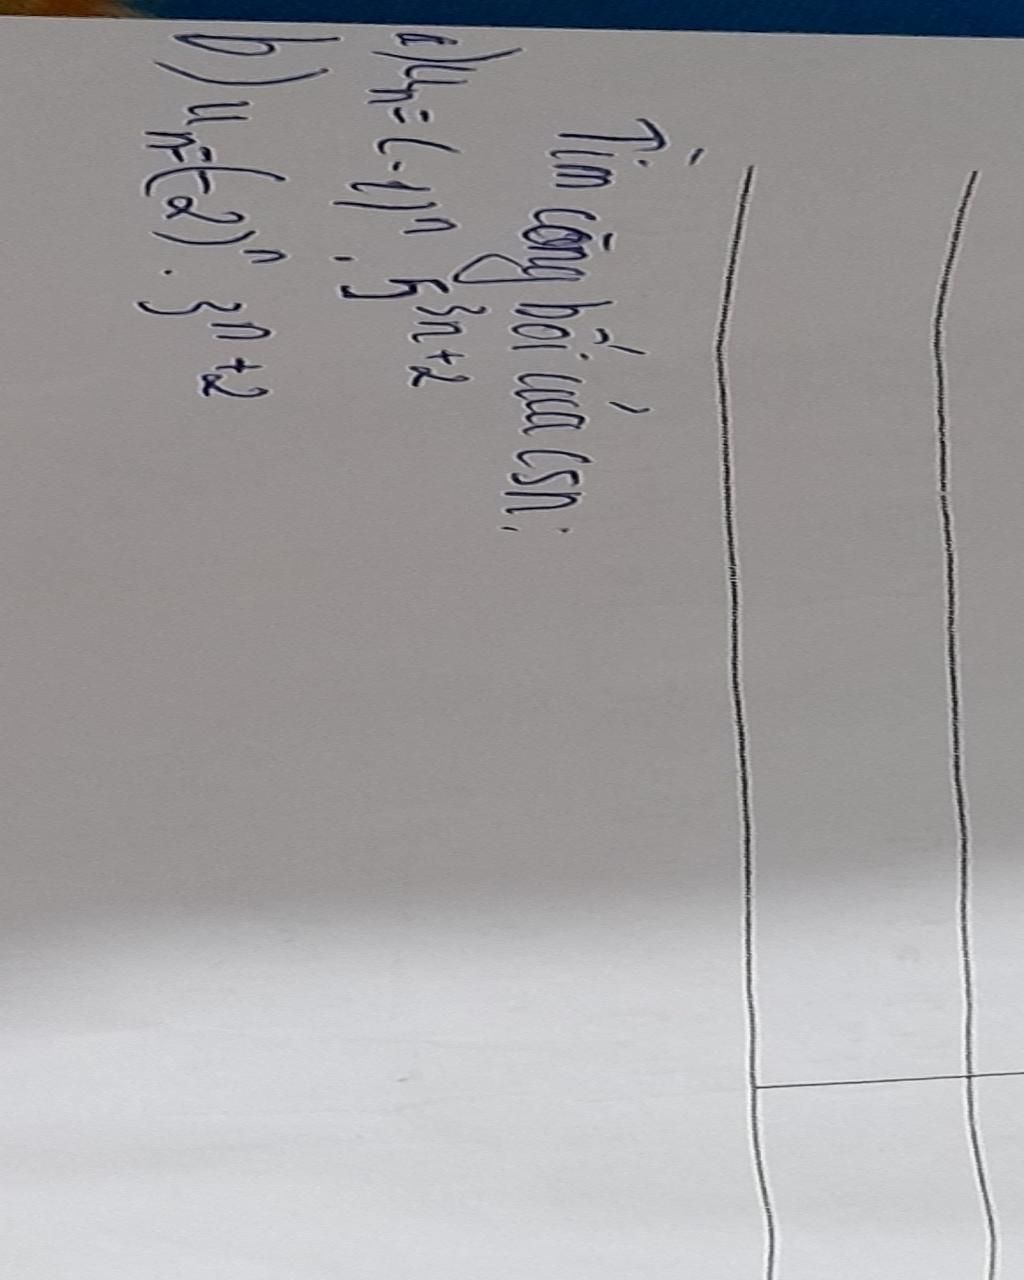 Tìm công bối của csn:
a) uₙ = (-1)ⁿ . 5³ⁿ⁺²
b) uₙ = (-2)ⁿ . 3ⁿ⁺²